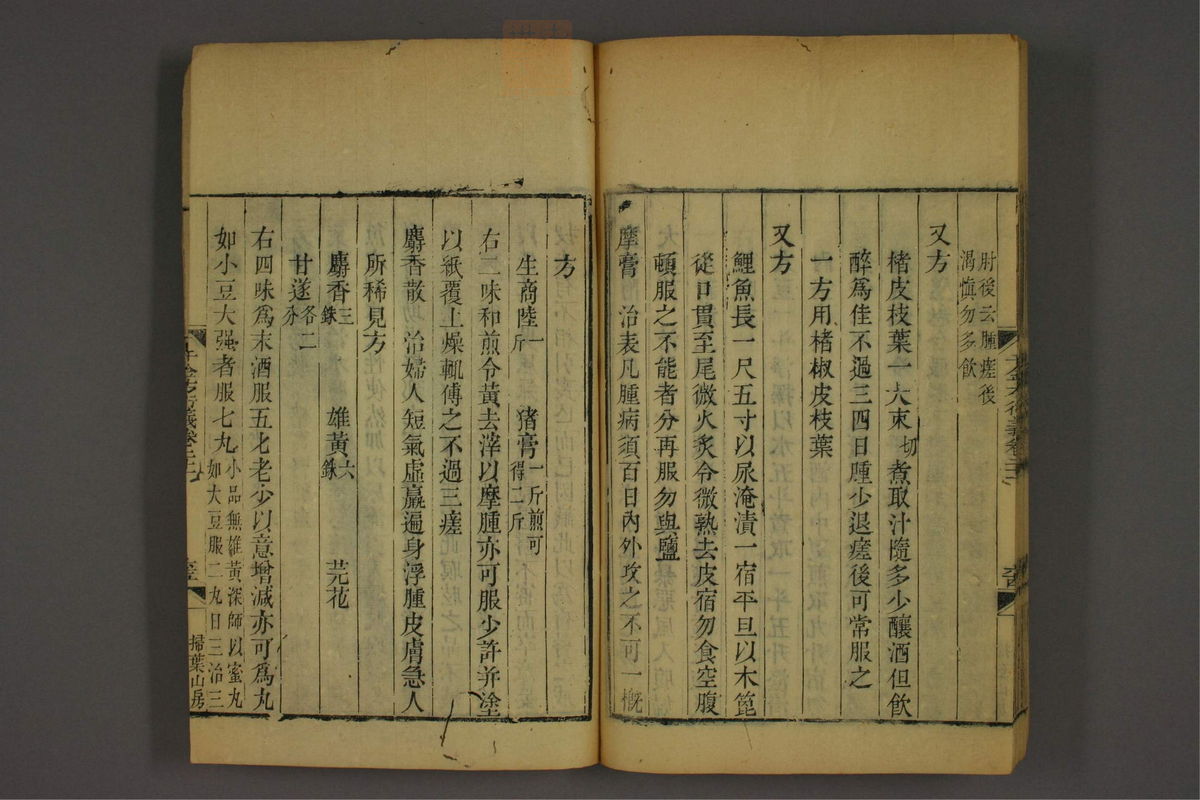 肘後云腫瘥後
渴慎勿多飲
又方
楮皮枝葉一大束切煮取汁隨多少釀酒但飲
醉為佳不過三四日腫少退瘥後可常服之
一方用楮椒皮枝葉
又方
鯉魚長一尺五寸以尿淹漬一宿平旦以木篦
從口貫至尾微火炙令微熟去皮宿勿食空腹
頓服之不能者分再服勿與鹽
摩膏　治表凡腫病須百日內外攻之不可一概
方
生商陸一斤　猪膏一斤煎可得二斤
右二味和煎令黃去滓以摩腫亦可服少許并塗
以紙覆上燥輒傅之不過三瘥
麝香散　治婦人短氣虛羸遍身浮腫皮膚急人
所稀見方
麝香三銖　雄黃六銖　芫花
甘遂各二分
右四味為末酒服五匕老少以意增減亦可為丸
如小豆大强者服七丸小品無雄黃深師以蜜丸如大豆服二丸日三治三
千金方衍義卷二十一
掃葉山房